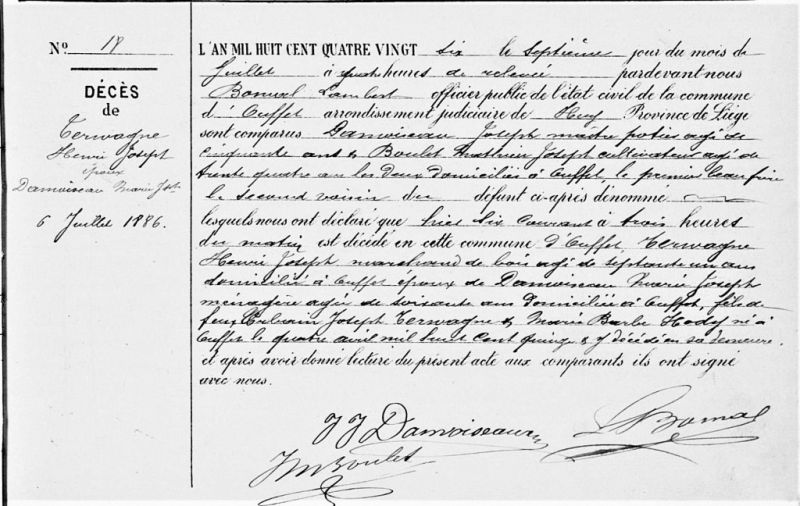 N° 18
DÉCÈS
de
Terwagne
Henri Joseph
époux
Damoiseau Marie Jph
6 Juillet 1886.
L'AN MIL HUIT CENT QUATRE VINGT six le Septième jour du mois de
Juillet à quatre heures de relevée par devant nous
Bomal Lambert officier public de l'état civil de la commune
d'Ouffet arrondissement judiciaire de Huy Province de Liége
sont comparus Damoiseau Joseph maître potier agé de
cinquante ans & Boulet Mathieu Joseph cultivateur agé de
trente quatre ans les deux domiciliés à Ouffet le premier beau frère
le second voisin du défunt ci-après dénommé
lesquels nous ont déclaré que hier six courant à trois heures
du matin est décédé en cette commune d'Ouffet Terwagne
Henri Joseph marchand de bois agé de septante un ans
domicilié à Ouffet époux de Damoiseau Marie Joseph
ménagère agée de soixante ans domiciliée à Ouffet, fils de
feux Joseph Terwagne & Marie Barbe Hody né à
Ouffet le quatre avril mil huit cent quinze & y décédé en sa demeure.
et après avoir donné lecture du présent acte aux comparants ils ont signé
avec nous.
J J Damoiseau
LBomal
JMBoulet